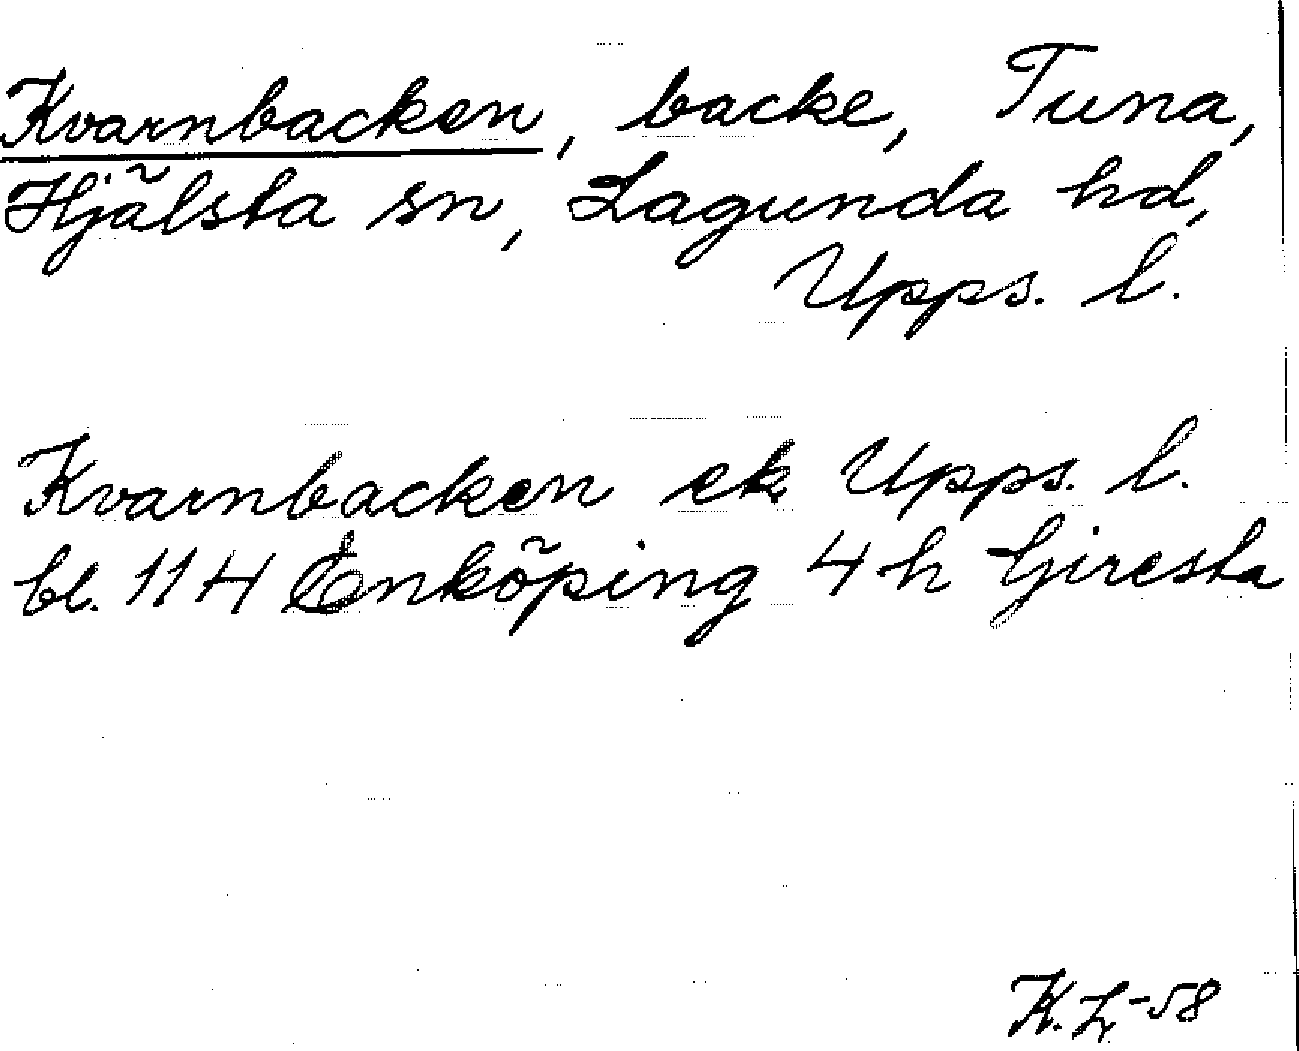 Kvarnbacken, backe, Tuna,
Hjälsta sn, Lagunda hd,
Upps. l.
Kvarnbacken ek Upps. l.
bl. 114 Enköping 4 h Giresta
K. L-58